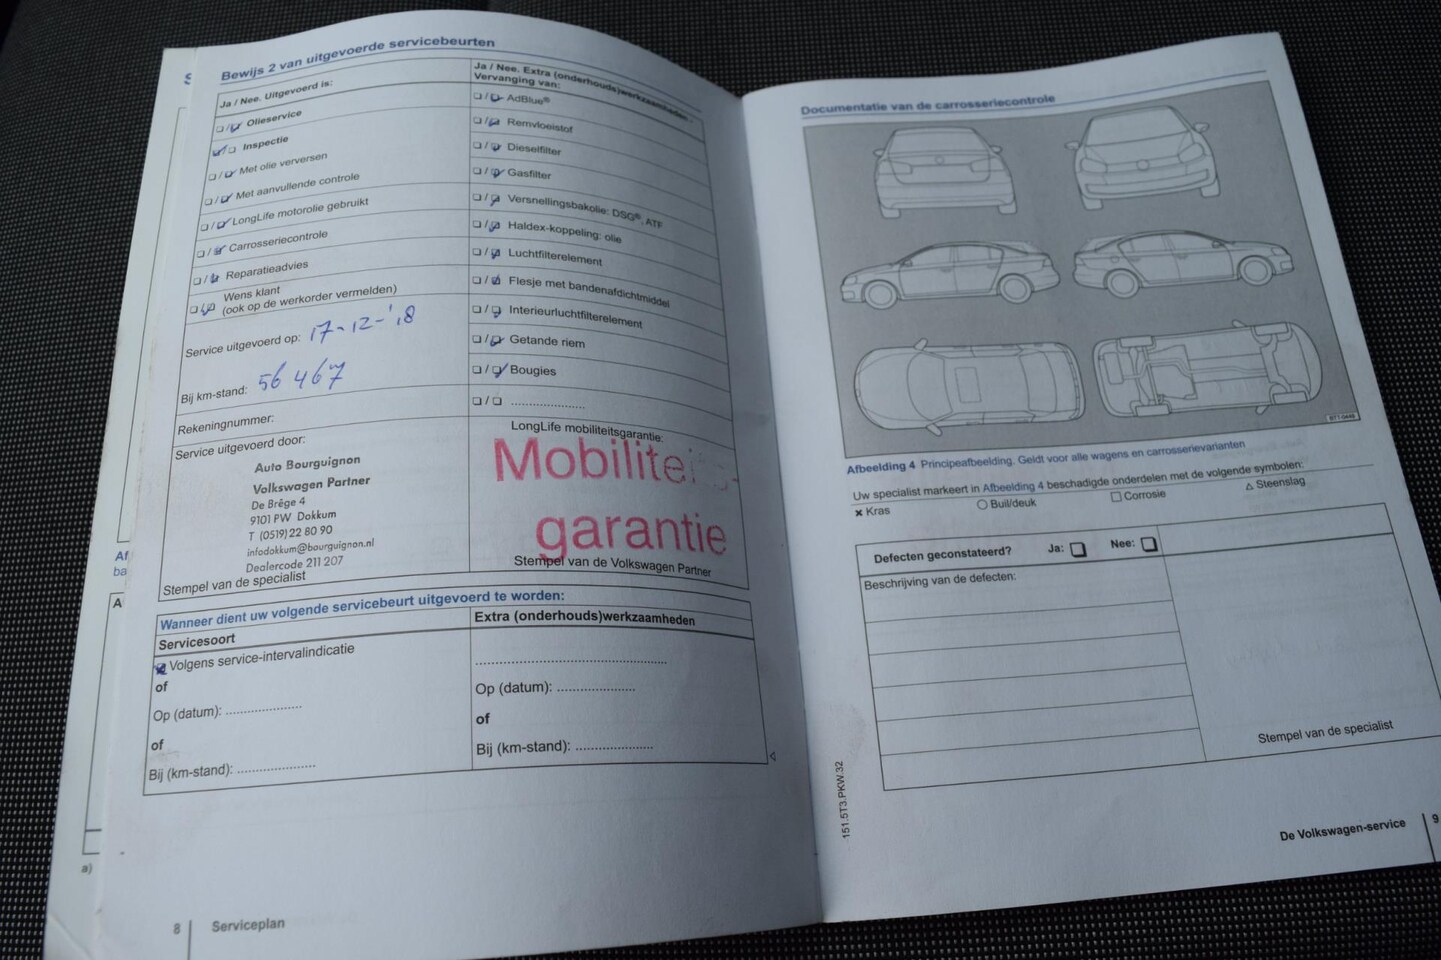 Bewijs 2 van uitgevoerde servicebeurten
Ja / Nee. Uitgevoerd is:
Olieservice
Inspectie
Met olie verversen
Met aanvullende controle
LongLife motorolie gebruikt
Carrosseriecontrole
Reparatieadvies
Wens klant
(ook op de werkorder vermelden)
Service uitgevoerd op: 17-12-'18
Bij km-stand: 56 467
Rekeningnummer:
Service uitgevoerd door:
Auto Bourguignon
Volkswagen Partner
De Brêge 4
9101 PW Dokkum
T (0519) 22 80 90
infodokkum@bourguignon.nl
Dealercode 211 207
Stempel van de specialist
Ja / Nee. Extra (onderhouds)werkzaamheden -
Vervanging van:
AdBlue®
Remvloeistof
Dieselfilter
Gasfilter
Versnellingsbakolie: DSG®, ATF
Haldex-koppeling: olie
Luchtfilterelement
Flesje met bandenafdichtmiddel
Interieurluchtfilterelement
Getande riem
Bougies
....................
LongLife mobiliteitsgarantie:
garantie
Stempel van de Volkswagen Partner
Wanneer dient uw volgende servicebeurt uitgevoerd te worden:
Servicesoort
Volgens service-intervalindicatie
of
Op (datum): ....................
of
Bij (km-stand): ....................
Extra (onderhouds)werkzaamheden
..................................................
Op (datum): ....................
of
Bij (km-stand): ....................
a)
8 Serviceplan
Documentatie van de carrosseriecontrole
Afbeelding 4 Principeafbeelding. Geldt voor alle wagens en carrosserievarianten
Uw specialist markeert in Afbeelding 4 beschadigde onderdelen met de volgende symbolen:
Kras Buil/deuk Corrosie Steenslag
Defecten geconstateerd? Ja: Nee:
Beschrijving van de defecten:
Stempel van de specialist
151.5T3.PKW.32
De Volkswagen-service 9